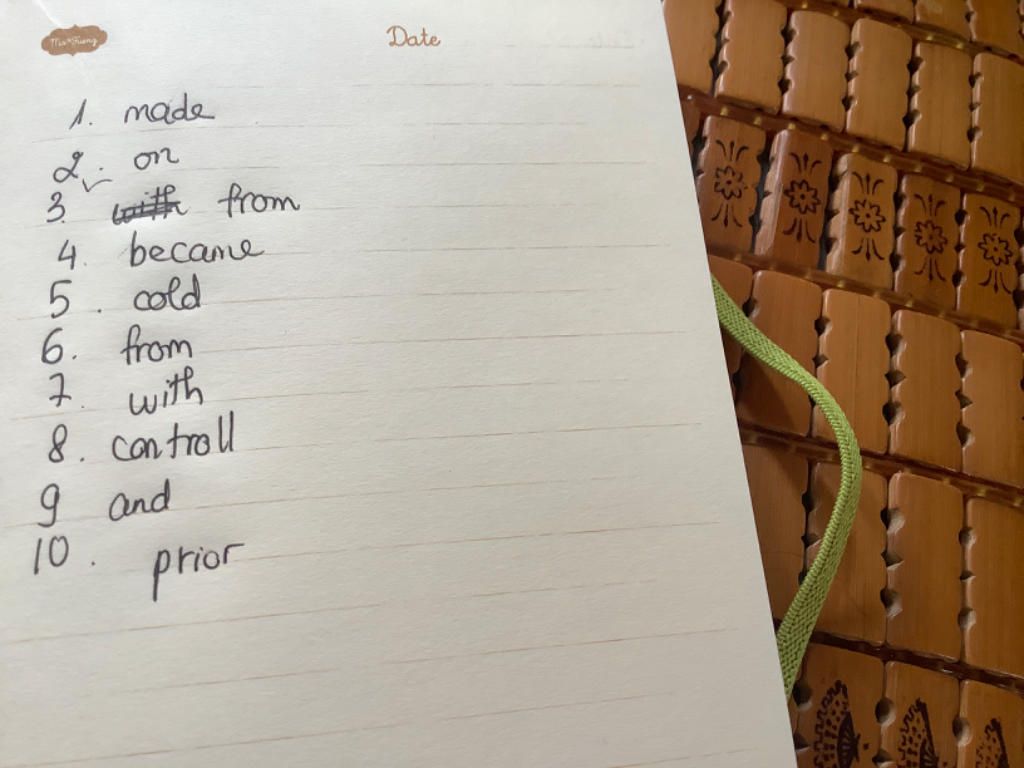 Date
1. made
2. on
3. with from
4. became
5. cold
6. from
7. with
8. controll
9 and
10. prior